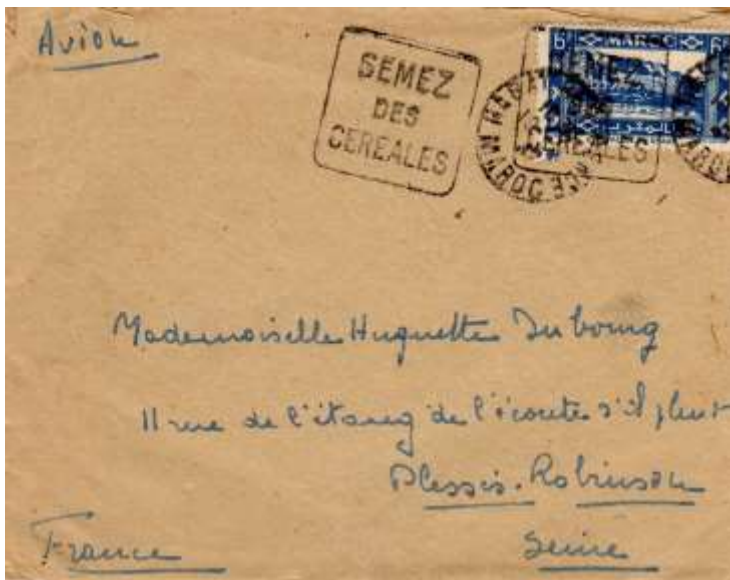 Avion
SEMEZ
DES
CEREALES
6F MAROC
RABAT
MAROC
CEREALES
MAROC
Mademoiselle Huguette Dubourg
11 rue de l'étang de l'écoute s'il pleut
Plessis-Robinson
France
Seine